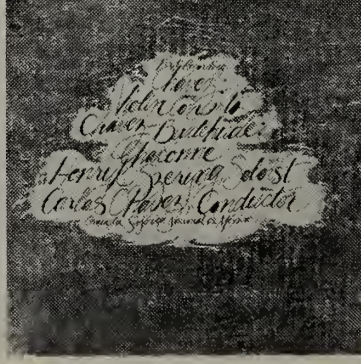 Chavez
Violin Concerto
Chavez-Buxtehude
Chaconne
Henryk Szeryng, Soloist
Carlos Chavez, Conductor
Orquesta Sinfonica Nacional de Mexico